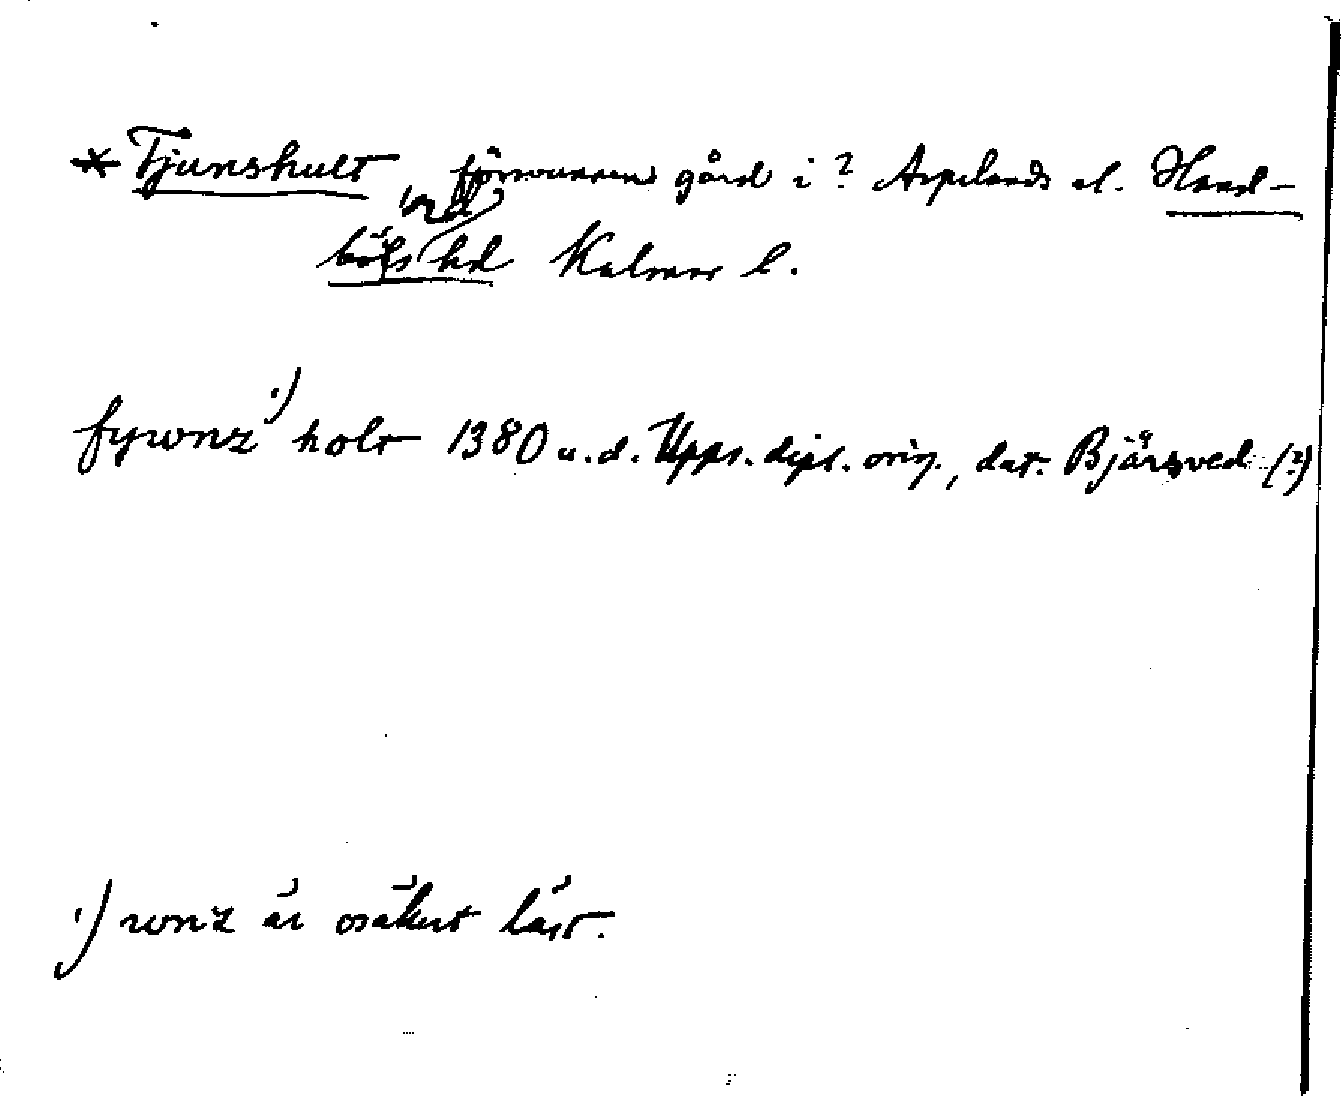 * Tjunshult försvunnen gård i ? Aspelands el. Hand-
börds hd Kalmar l.
fywnz ¹) holt 1380 u.d. Upps. dipl. orig., dat. Bjärsved (?)
¹) wnz är osäkert läst.